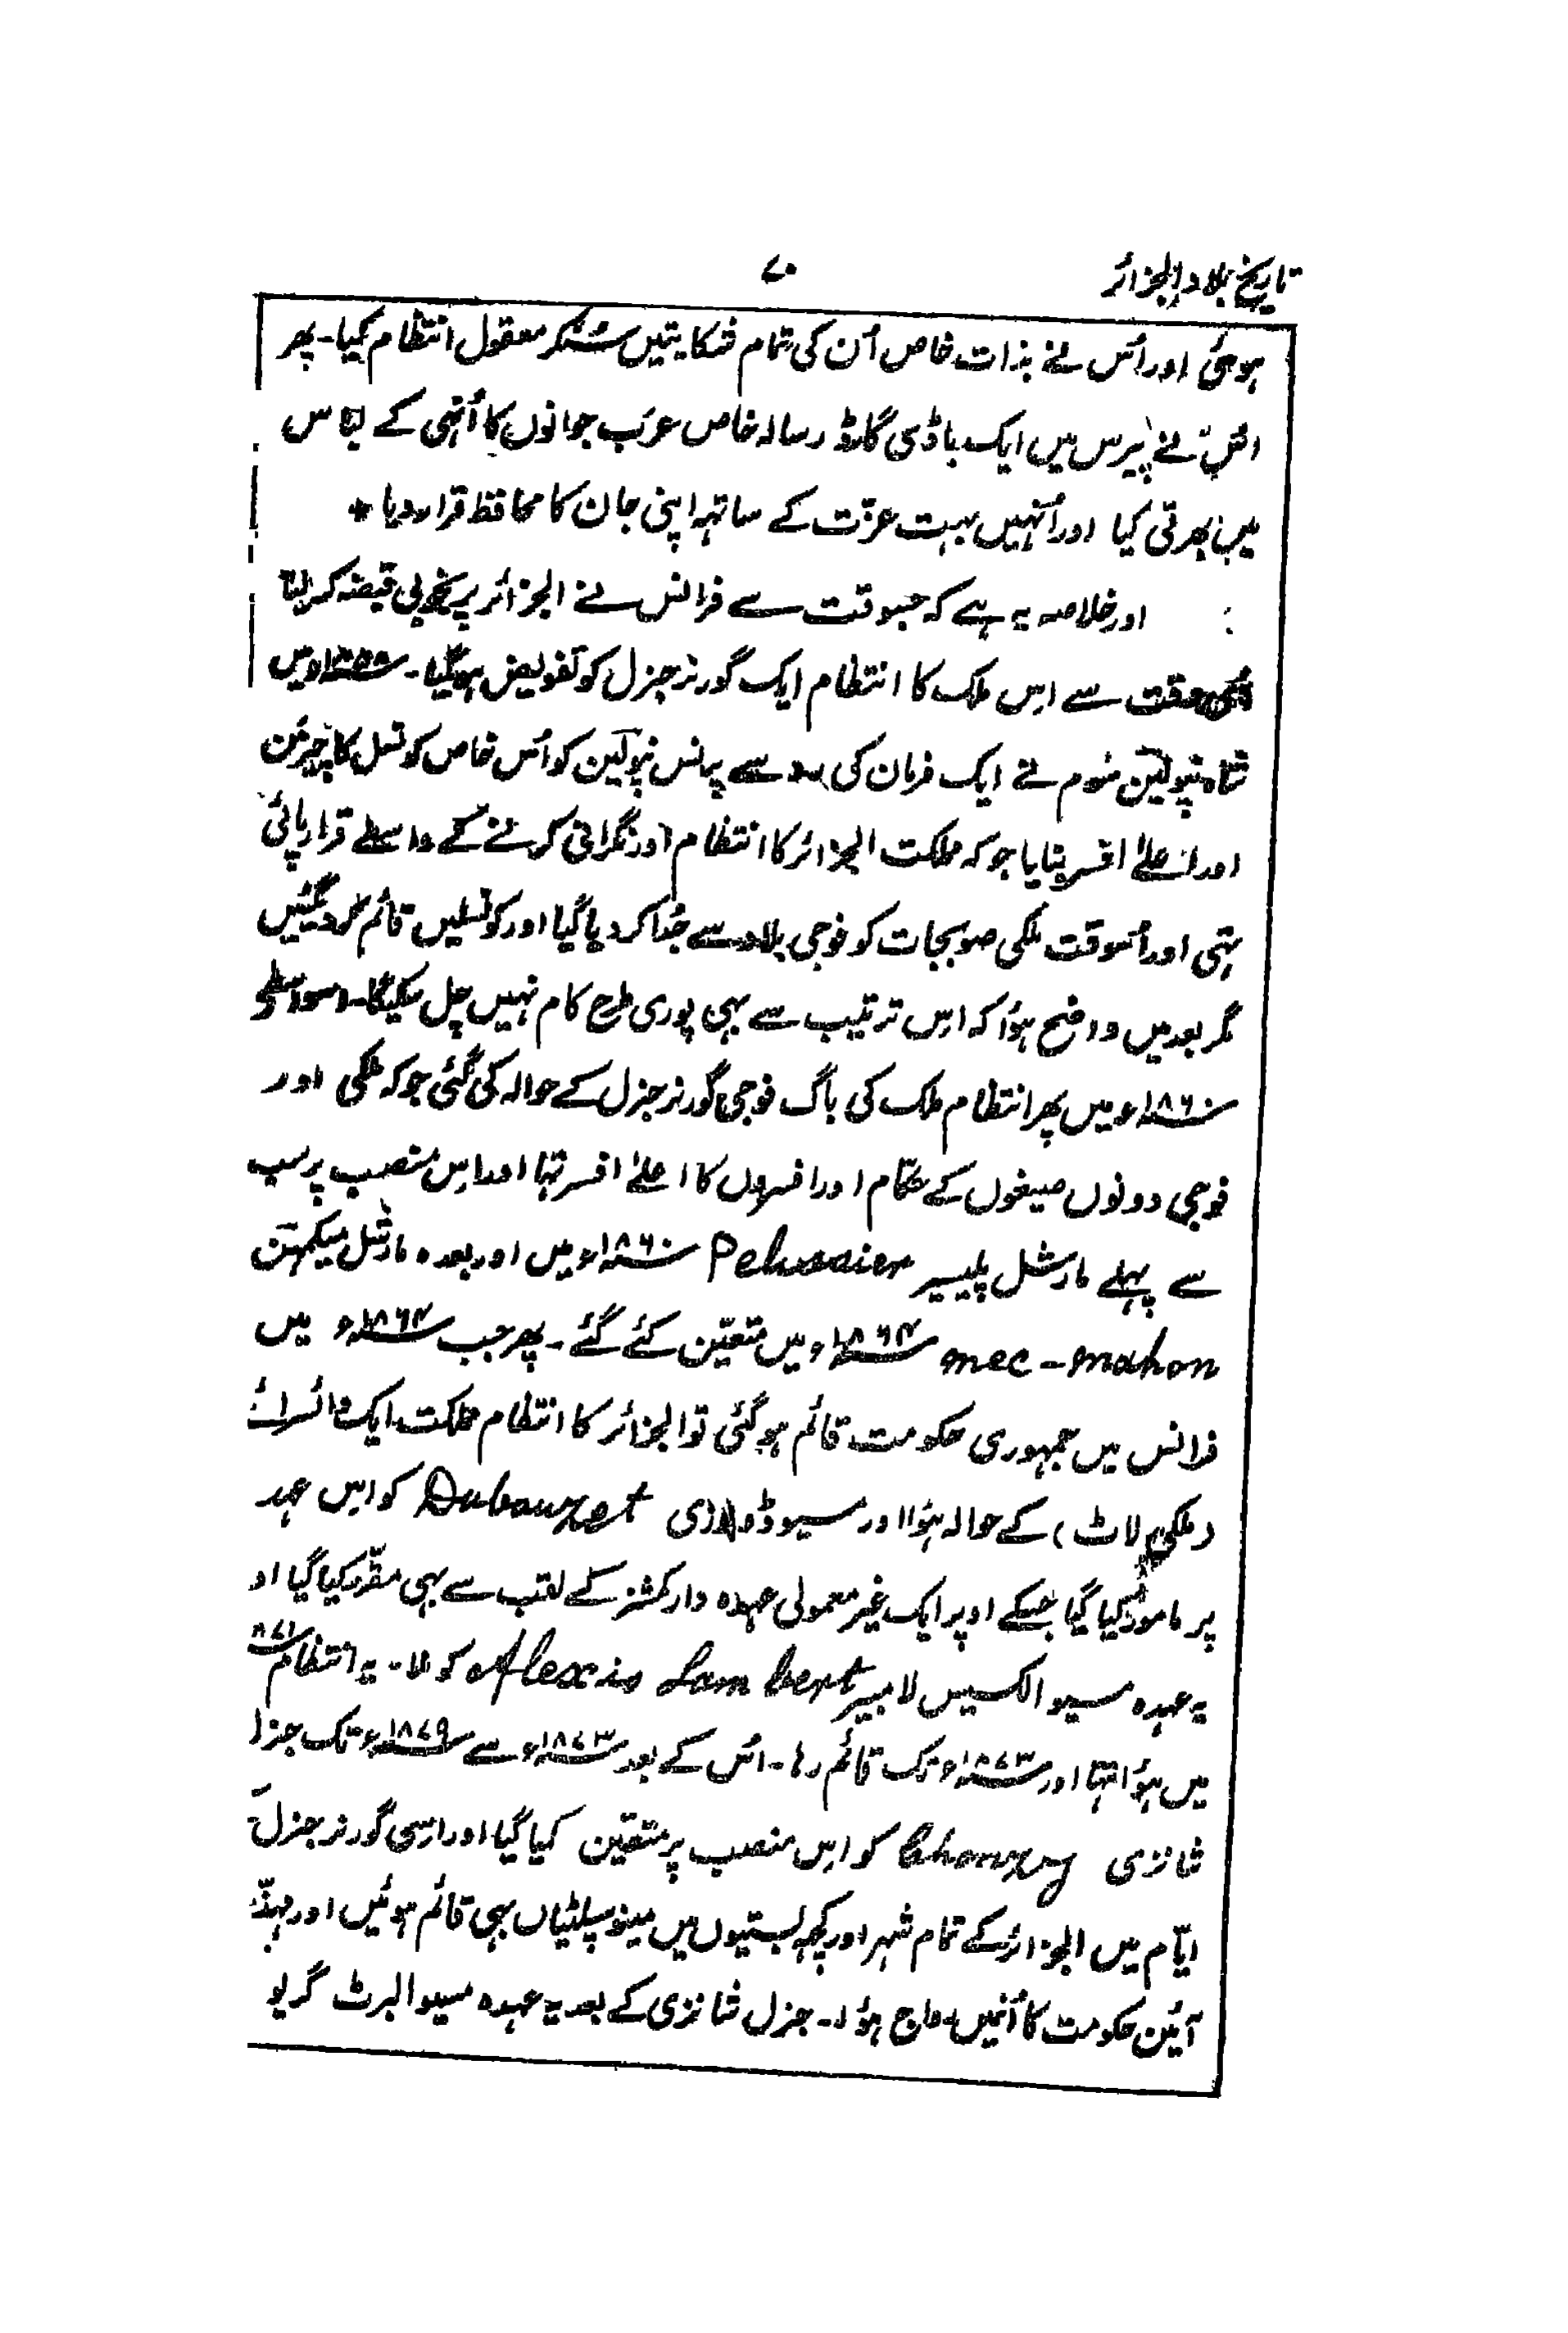 تاریخ بلاد الجزائر
۷۰
ہوئی اور اُس نے بذات خاص اُن کی تمام شکایتیں سُنکر معقول انتظام کیا۔ پھر
اُس نے پیرس میں ایک باڈی گارڈ رسالہ خاص عرب جوانوں کا اُنہی کے لباس
میں بھرتی کیا اور اُنہیں بہت عزّت کے ساتھہ اپنی جان کا محافظ قرار دیا *
اور خلاصہ یہ ہے کہ جسوقت سے فرانس نے الجزائر پر بخوبی قبضہ کر لیا
اُسی وقت سے اِس ملک کا انتظام ایک گورنر جنرل کو تفویض ہوگیا۔ میں
شاہ نپولین سوم نے ایک فرمان کی رو سے پرنس نپولین کو اُس خاص کونسل کا چیرمین
اور اعلےٰ افسر بنایا جو کہ مملکت الجزائر کا انتظام اور نگرانی کرنے کے واسطے قرار پائی
تہی اور اُسوقت ملکی صوبجات کو فوجی بلاد سے جُدا کر دیا گیا اور کونسلیں قائم کر دیگئیں
مگر بعد میں واضح ہوُا کہ اِس ترتیب سے بہی پوری طرح کام نہیں چل سکیگا۔ اسواسطے
سنہ ۱۸۶۰ء میں پھر انتظام ملک کی باگ فوجی گورنر جنرل کے حوالہ کی گئی جو کہ ملکی اور
فوجی دونوں صیغوں کے حکّام اور افسروں کا اعلےٰ افسر تہا اور اِس منصب پر سب
سے پہلے مارشل پلیسیر Pelussier سنہ ۱۸۶۰ء میں اور بعدہ مارشل میکمہن
mec-mahon سنہ ۱۸۶۴ء میں متعیّن کئے گئے۔ پھر جب میں
فرانس میں جمہوری حکومت قائم ہوگئی تو الجزائر کا انتظام مملکت ایک وائسرائے
(ملکی لاٹ) کے حوالہ ہوُا اور مسیو کو اِس عہد
پر مامور کیا گیا جسکے اوپر ایک غیر معمولی عہدہ دار کمشنر کے لقب سے بہی مقرّر کیا گیا او
یہ عہدہ مسیو الکسیس لامبیر Alexis Lambert کو ملا۔ یہ انتظام سنہ ۱۸۷۱
میں ہوُا تہا اور سنہ ۱۸۷۳ء تک قائم رہا۔ اُس کے بعد سنہ ۱۸۷۳ء سے سنہ ۱۸۷۹ء تک جنرل
شانزی Chonzy کو اِس منصب پر متعیّن کیا گیا اور اِسی گورنر جنرل
ایّام میں الجزائر کے تمام شہر اور کچھہ بستیوں میں مینوسپلٹیاں بہی قائم ہوئیں اور مہذّ
آئین حکومت کا اُنمیں رواج ہوُا۔ جنرل شانزی کے بعد یہ عہدہ مسیو البرٹ گریو